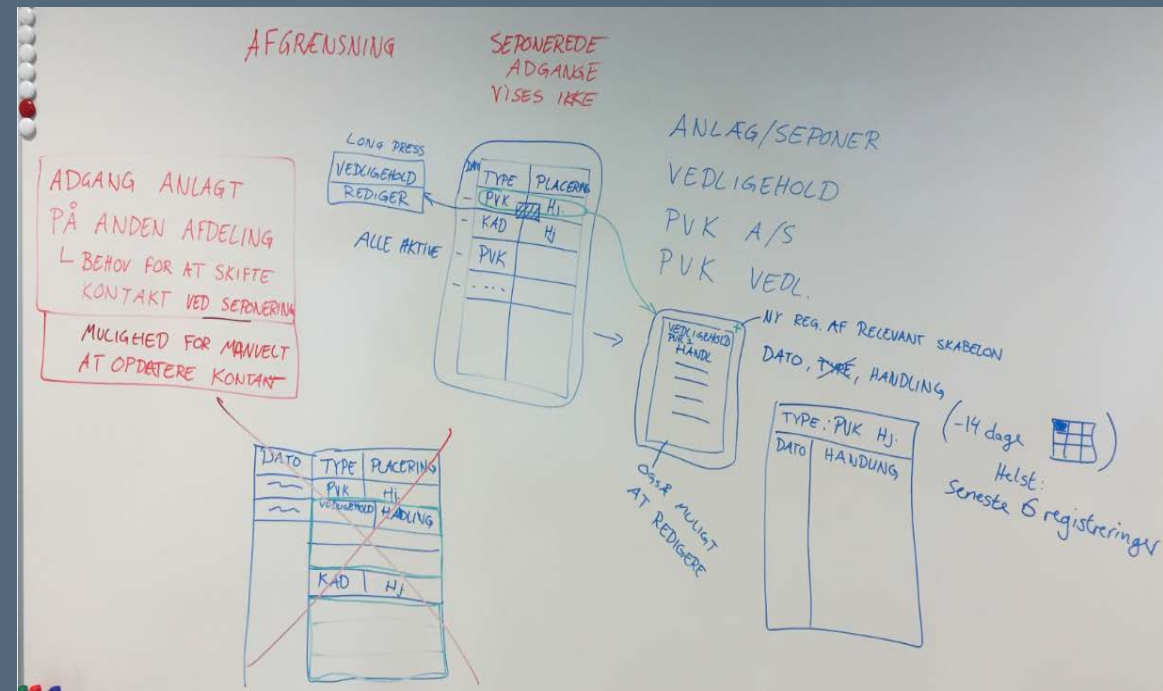 AFGRÆNSNING
SEPONEREDE
ADGANGE
VISES IKKE
ADGANG ANLAGT
PÅ ANDEN AFDELING
BEHOV FOR AT SKIFTE
KONTAKT VED SEPONERING
MULIGHED FOR MANUELT
AT OPDATERE KONTAKT
LONG PRESS
VEDLIGEHOLD
REDIGER
ALLE AKTIVE
DATO
TYPE PLACERING
- PVK Hj.
- KAD Hj
- PVK
- ....
ANLÆG/SEPONER
VEDLIGEHOLD
PVK A/S
PVK VEDL.
VEDLIGEHOLD
PVK 1
HANDL
+
NY REG. AF RELEVANT SKABELON
DATO, TYPE, HANDLING
OGSÅ MULIGT
AT REDIGERE
TYPE: PVK Hj.
DATO HANDLING
(-14 dage )
Helst:
Seneste 6 registreringer
DATO TYPE PLACERING
PVK Hj.
VEDLIGEHOLD HADLING
KAD Hj